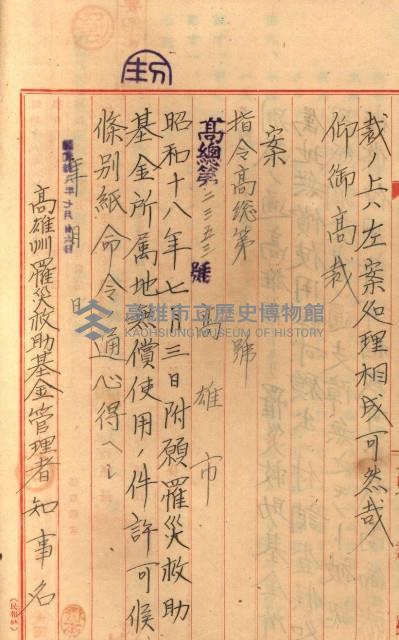 裁ノ上ハ左案処理相成可然哉
仰御高裁
案
指令高総第　　號
高總第二三五三號
高雄市
昭和十八年七月三日附願罹災救助
基金所属地無償使用ノ件許可候
條別紙命令通心得ヘシ
年月日
高雄州罹災救助基金管理者知事名
高雄市立歷史博物館
KAOHSIUNG MUSEUM OF HISTORY